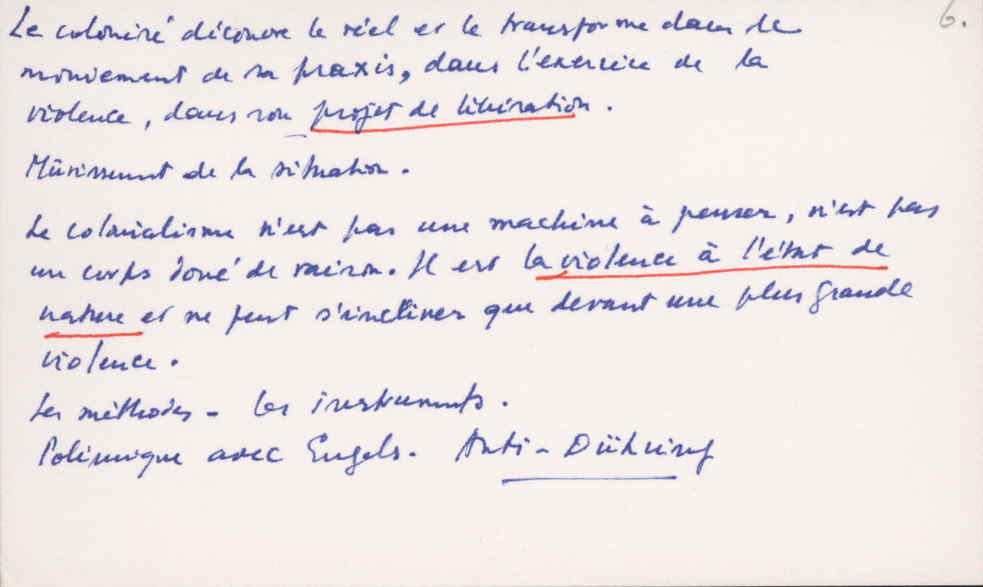 6.
Le colonisé découvre le réel et le transforme dans le
mouvement de sa praxis, dans l'exercice de la
violence, dans son projet de libération.
Mûrissement de la situation.
Le colonialisme n'est pas une machine à penser, n'est pas
un corps doué de raison. Il est la violence à l'état de
nature et ne peut s'incliner que devant une plus grande
violence.
Les méthodes - les instruments.
Polémique avec Engels. Anti-Dühring